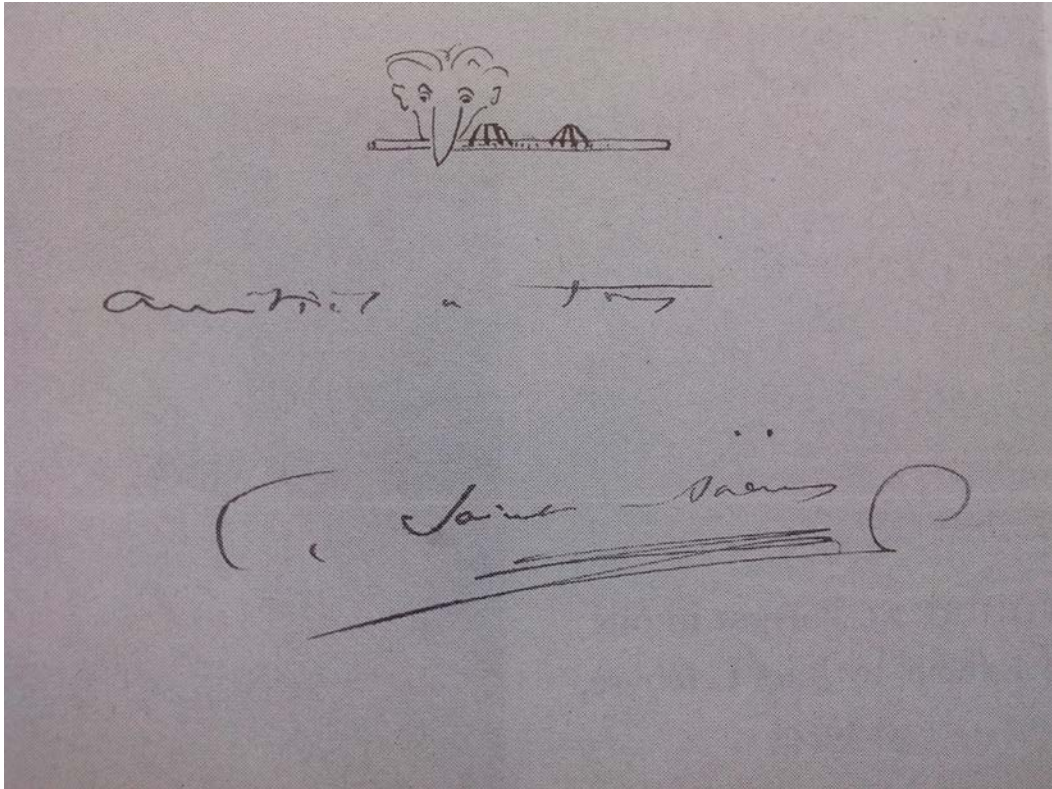 amitiés a tous
C. Saint-Saëns